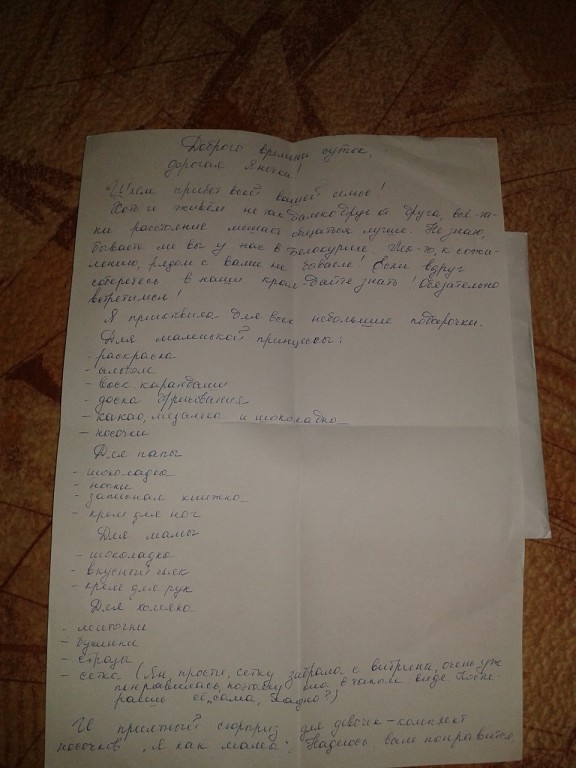 Доброго времени суток,
дорогая Яночка!
Шлём привет всей вашей семье!
Хоть и живём не так далеко друг от друга, всё-та-
ки расстояние мешает общаться лучше. Не знаю,
бываете ли вы у нас в Белокурихе. Мы-то, к сожа-
лению, рядом с вами не бываем! Если вдруг
соберетесь в наши края - дайте знать! Обязательно
встретимся!
Я приготовила для всех небольшие подарочки.
Для маленькой принцессы:
- раскраска
- альбом
- воск. карандаши
- доска д/рисования
- какао, медалька и шоколадка
- носочки
Для папы
- шоколадка
- носки
- записная книжка
- крем для ног
Для мамы
- шоколадка
- вкусный чай
- крем для рук
Для хомяка
- ленточки
- бусинки
- стразы
- сетка (Ян, прости, сетку забрала с витрины, очень уж
понравилась, поэтому она в таком виде.
сама, ладно?)
И приятный сюрприз для девочек - комплект
носочков "Я как мама". Надеюсь, вам понравится